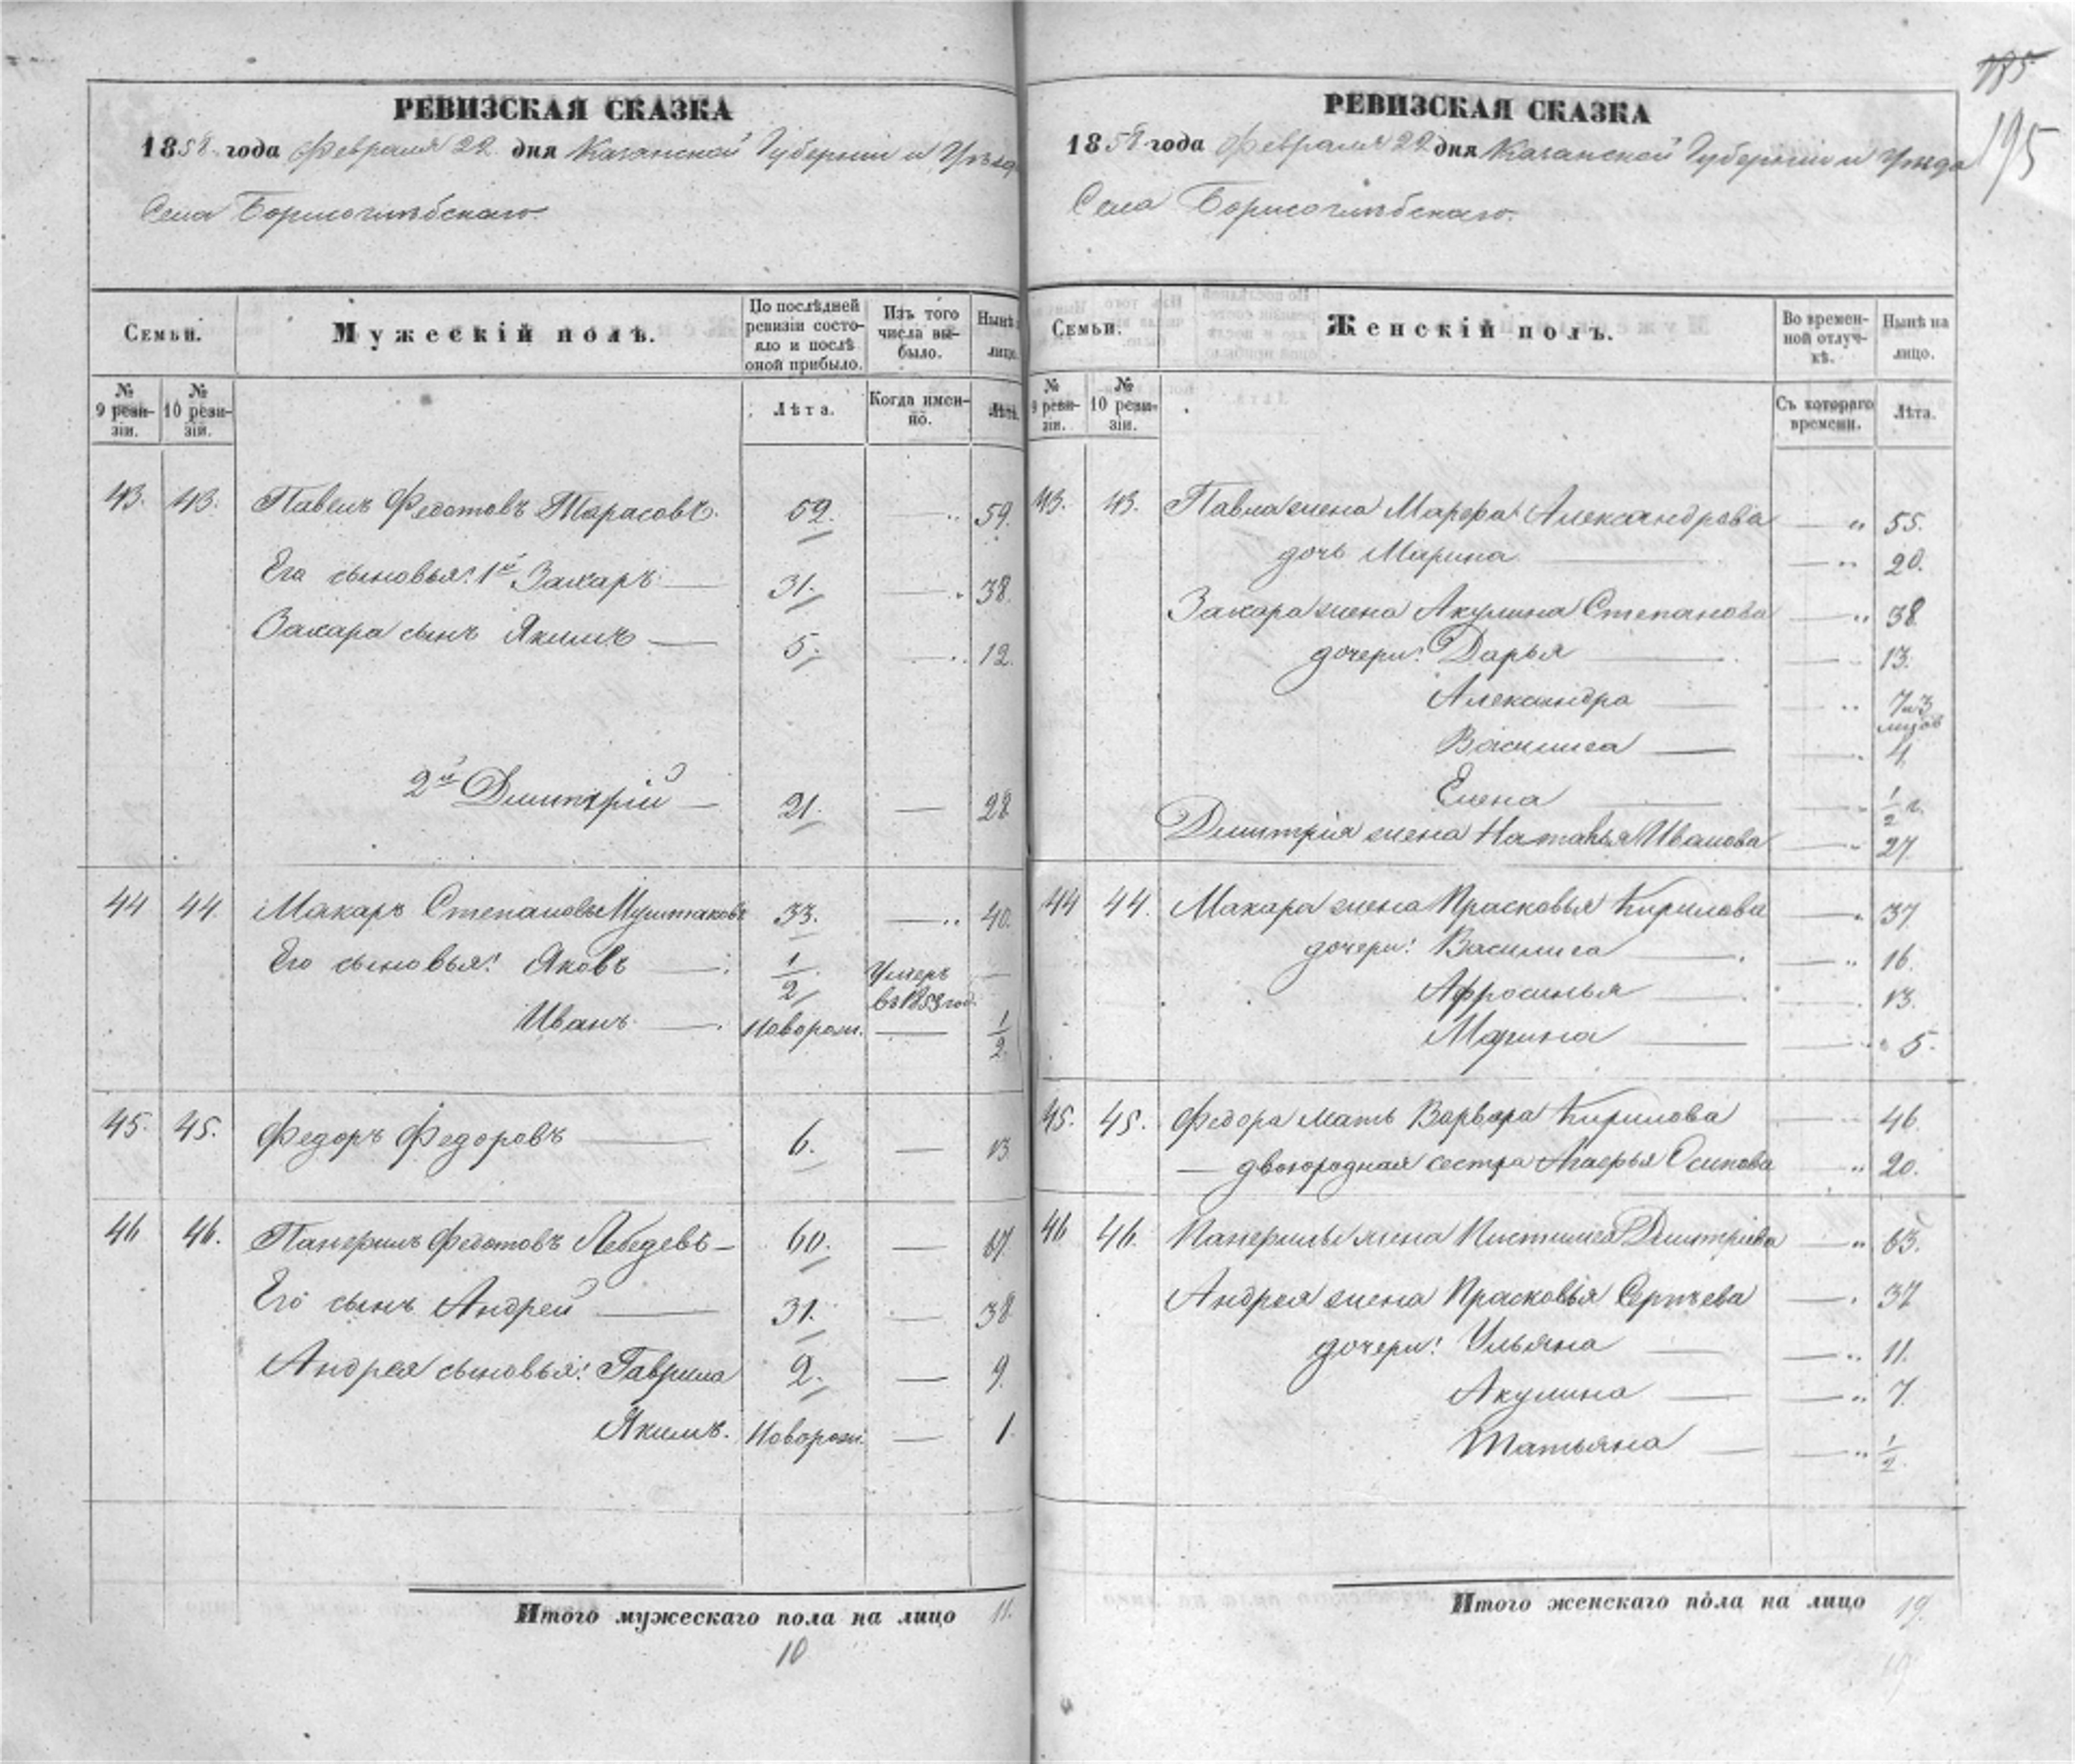 185
195
РЕВИЗСКАЯ СКАЗКА
1858 года Февраля 22 дня Казанской Губернiи и Уѣзда
Села Борисоглѣбскаго.
Семьи.
Мужескiй полъ.
По послѣдней ревизiи состо-
яло и послѣ
оной прибыло.
Изъ того
числа вы-
было.
Нынѣ
лицо.
№
9 реви-
зiи.
№
10 реви-
зiи.
Лѣта.
Когда имен-
но.
Лѣта.
43. 43. Павелъ Федотовъ Тарасовъ. 52. — 59.
Его сыновья: 1й Захаръ — 31. — 38.
Захара сынъ Якимъ — 5. — 12.
2й Дмитрiй — 21. — 28
44 44 Макаръ Степановъ Муштаковъ 33. — 40.
Его сыновья: Яковъ — 1/2 Умеръ —
въ 1853 год.
Иванъ — Поворож. — 1/2
45. 45. Федоръ Федоровъ — 6. — 13
46 46. Панфилъ Федотовъ Лебедевъ — 60. — 67.
Его сынъ Андрей — 31. — 38
Андрея сыновья: Гаврила 2. — 9.
Якимъ. Новорож. — 1.
Итого мужескаго пола на лицо 11.
10
РЕВИЗСКАЯ СКАЗКА
1858 года Февраля 22 дня Казанской Губернiи и Уѣзда
Села Борисоглѣбскаго.
Семьи.
Женскiй полъ.
Во времен-
ной отлуч-
кѣ.
Нынѣ на
лицо.
№
9 реви-
зiи.
№
10 реви-
зiи.
Съ котораго
времени.
Лѣта.
43. 43. Павла жена Марфа Александрова — " 55.
дочь Марина — — " 20.
Захара жена Акулина Степанова — " 38
дочери: Дарья — — " 13.
Александра — " 7 и 3
мѣсяц
Василиса — — 4.
Елена — — 1/2 г.
Дмитрiя жена Наталья Иванова — " 27
44 44. Макара жена Прасковья Кирилова — 37
дочери: Василиса — — " 16.
Афросинья — — " 13.
Марина — — " 5.
45. 45. Федора мать Варвара Кирилова — 46.
— двоюродная сестра Осипова — " 20.
46 46. Панфила жена Дмитрiева — " 63.
Андрея жена Прасковья Сергѣева — 37
дочери: Ульяна — — " 11.
Акулина — — " 7.
Татьяна — — " 1/2
Итого женскаго пола на лицо 19.